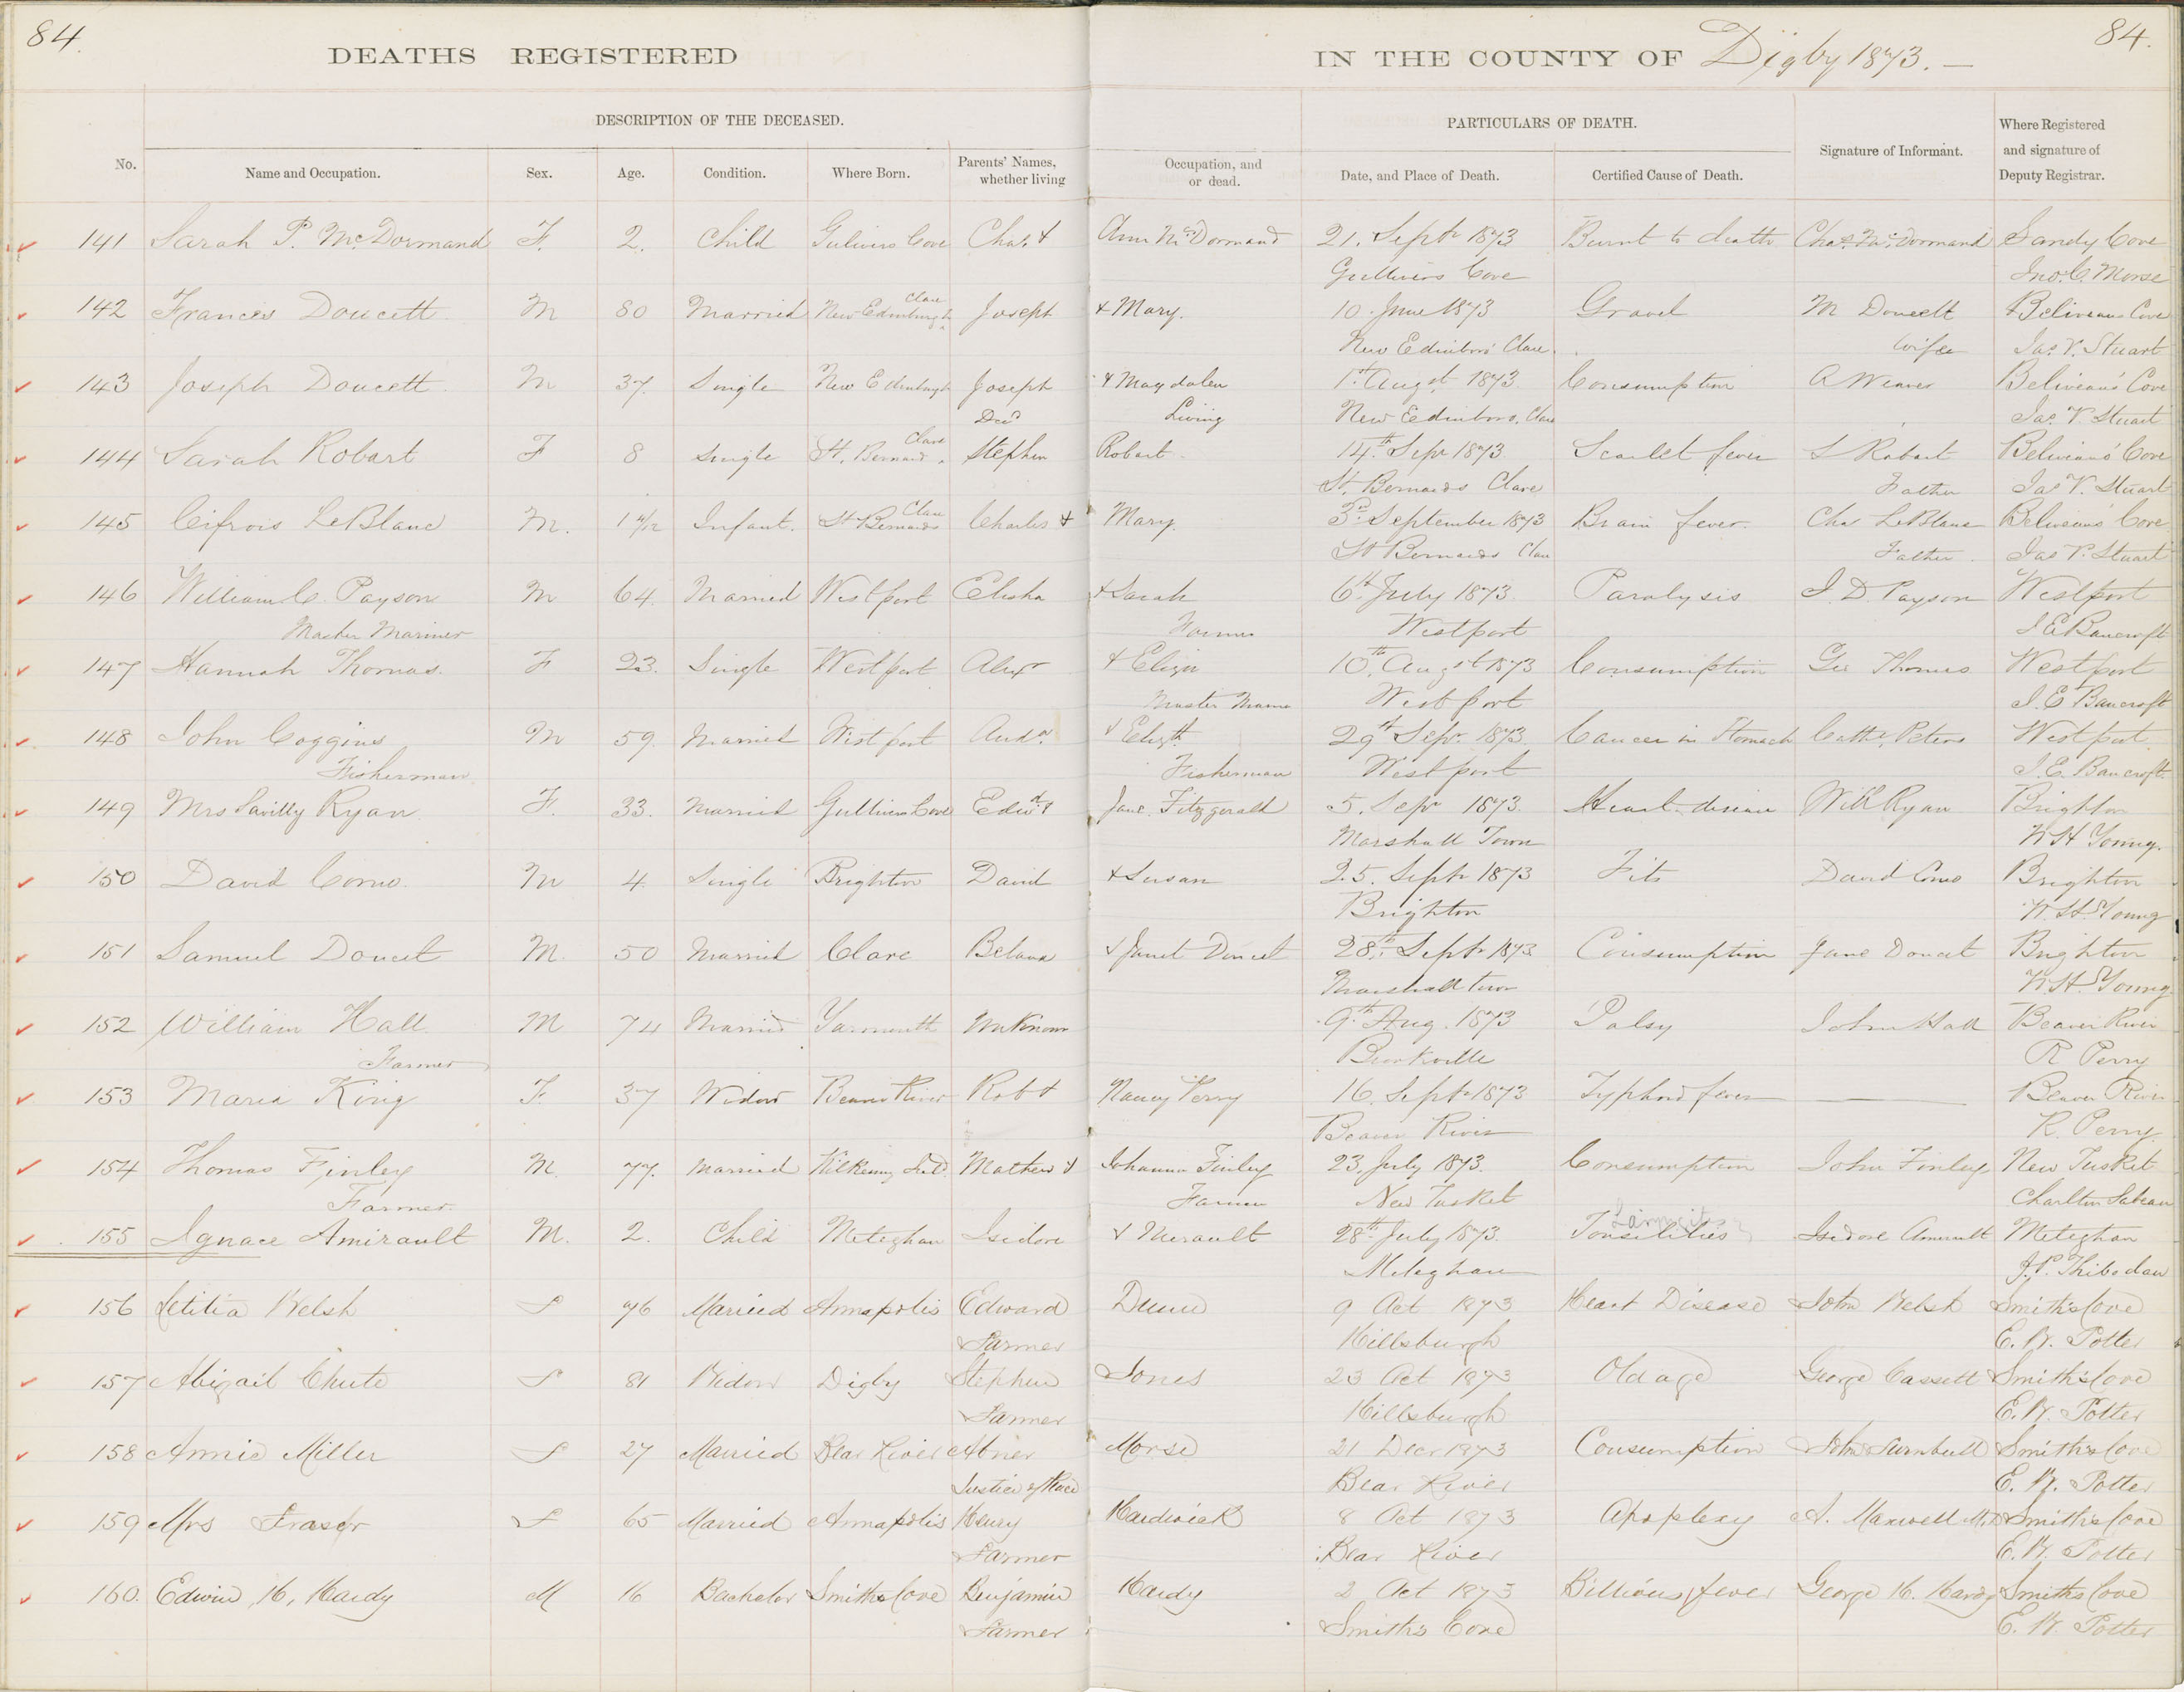 84.
84.
DEATHS REGISTERED IN THE COUNTY OF Digby 1873. —
DESCRIPTION OF THE DECEASED.
PARTICULARS OF DEATH.
No.
Name and Occupation.
Sex.
Age.
Condition.
Where Born.
Parents' Names, whether living
Occupation, and or dead.
Date, and Place of Death.
Certified Cause of Death.
Signature of Informant.
Where Registered and signature of Deputy Registrar.
141 Sarah P. McDormand F. 2. Child Gulivers Cove Chas. & Ann McDormand 21. Sept 1873 Burnt to death Chas. McDormand Sandy Cove
Gullivers Cove Jno. C. Morse
142 Frances Doucett M 80 Married New Edinburgh Clare Joseph & Mary. 10 June 1873 Gravel M Doucett Beliveaus Cove
New Edinboro' Clare. Wife Jas. V. Stuart
143 Joseph Doucett M 37. Single New Edinburgh Joseph & Magdalen 1st Augst 1873 Consumption A Weaver Beliveau's Cove
Decd Living New Edinboro, Clare Jas. V. Stuart
144 Sarah Robart F 8 Single St. Bernard Clare Stephen Robart 14th Sepr 1873 Scarlet fever S Robart Beliveau's Cove
St. Bernards Clare Father Jas V. Stuart
145 Cifrois LeBlanc M. 1 Infant. St Bernards Clare Charles & Mary. 3d September 1873 Brain fever. Cha LeBlanc Beliveaus' Cove
St Bernards Clare Father Jas V. Stuart
146 William C. Payson M 64. Married Westport Elisha & Sarah 6th July 1873. Paralysis I. D. Payson Westport
Master Mariner Farmer Westport J E Bancroft
147 Hannah Thomas. F 23. Single Westport Alexr & Eliza 10th Augst 1873 Consumption Geo Thomas Westport
Master Westport J. E Bancroft
148 John Coggins M 59. Married Westport Andw. & Elizth. 29th Sepr. 1873. Cancer in Stomach Cathe. Peters Westport
Fisherman. Fisherman Westport J. E. Bancroft.
149 Mrs Savilly Ryan. F. 33. Married Gullivers Cove Edwd & Jane Fitzgerald 5. Sepr 1873. Heart disease Will Ryan Brighton
Marshall Town W H Young.
150 David Como. M 4 Single Brighton David & Susan 25. Sept 1873 Fits David Como Brighton
Brighton W. H Young
151 Samuel Doucet M. 50 Married Clare & Janet Doucet 28th Sept 1873 Consumption Jane Doucet Brighton
Marshall town W. H. Young
152 William Hall. M 74 Married Yarmouth Unknown 9th Aug. 1873 Palsy John Hall Beaver River
Farmer R Perry
153 Maria King F. 37 Widow Beaver River Robt & Nancy Perry 16. Sept 1873 Typhoid fever — Beaver River
Beaver River R. Perry.
154 Thomas Finley M. 77. Married Kilkenny Ireld. Mathew & Johanna Finley 23. July 1873. Consumption John Finley New Tusket
Farmer. Farmer New Tusket Charlton Sabean
155 Ignace Amirault M. 2. Child Meteghan Isidore & Mirault 28th July 1873. Tonsilities Isidore Amirault Meteghan
Meteghan J. P. Thibodau
156 Letitia Welsh F 76 Married Annapolis Edward Dunn 9 Oct 1873 Heart Disease John Welsh Smiths Cove
Farmer Hillsburgh E. W. Potter
157 Abigail Chute F 81 Widow Digby Stephen Jones 23 Oct 1873 Old age George Cassett Smiths Cove
Farmer Hillsburgh E. W. Potter
158 Annie Miller F 27 Married Bear River Abner Morse 21 Decr 1873 Consumption John Turnbull Smiths Cove
Justice of Peace Bear River E. W. Potter
159 Mrs Fraser F 65 Married Annapolis Henry Hardwick 8 Oct 1873 Apoplexy A. Maxwell M.D Smiths Cove
Farmer Bear River E. W. Potter
160. Edwin H. Hardy M 16 Bachelor Smiths Cove Benjamin Hardy 2 Oct 1873 Billious fever George H. Hardy Smiths Cove
Farmer Smith's Cove E. W. Potter